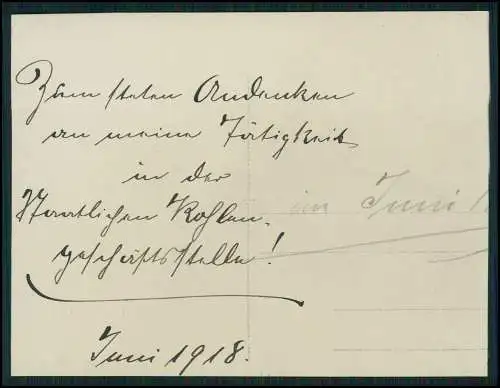 Zum steten Andenken
an meine Tätigkeit
in der
Staatlichen Kohlen-
geschäftsstelle!
im Juni
Juni 1918.